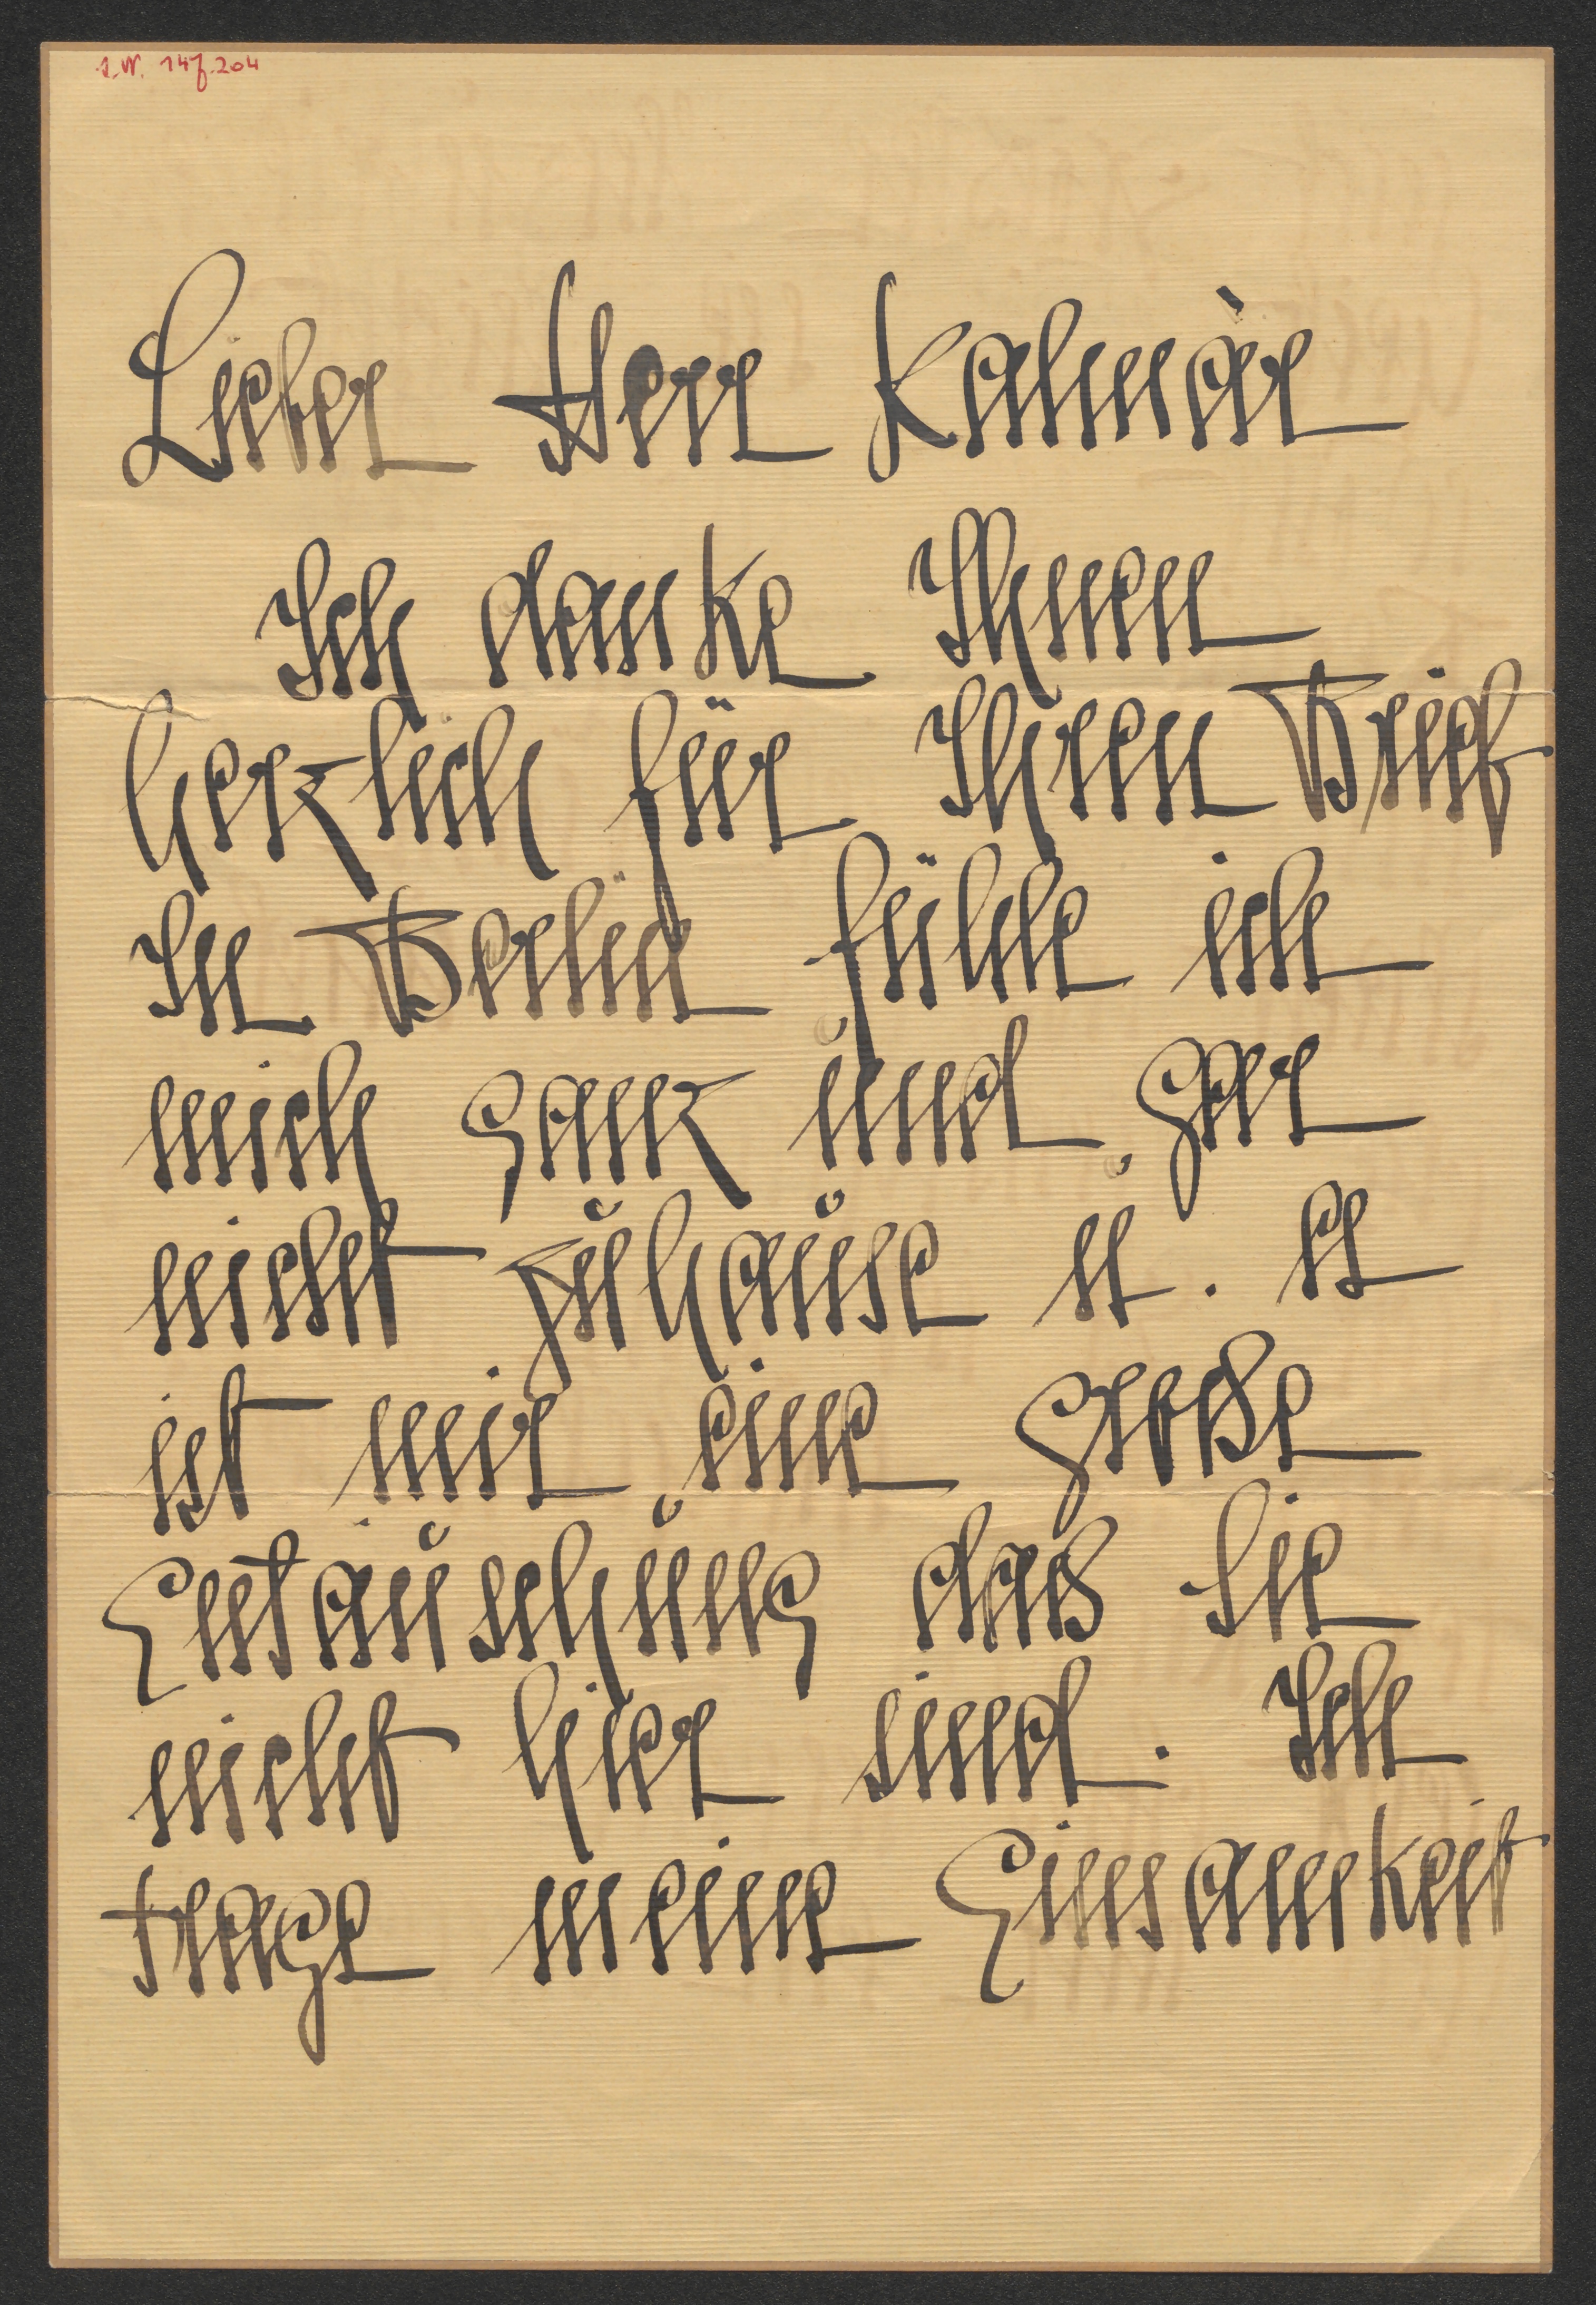 I.N. 147.204
Lieber Herr Kalmàr
Ich danke Ihnen
herzlich für Ihren Brief
In Berlin fühle ich
mich ganz und gar
nicht zuhause u. es
ist mir eine große
Entäuschung daß Sie
nicht hier sind. Ich
trage meine Einsamkeit